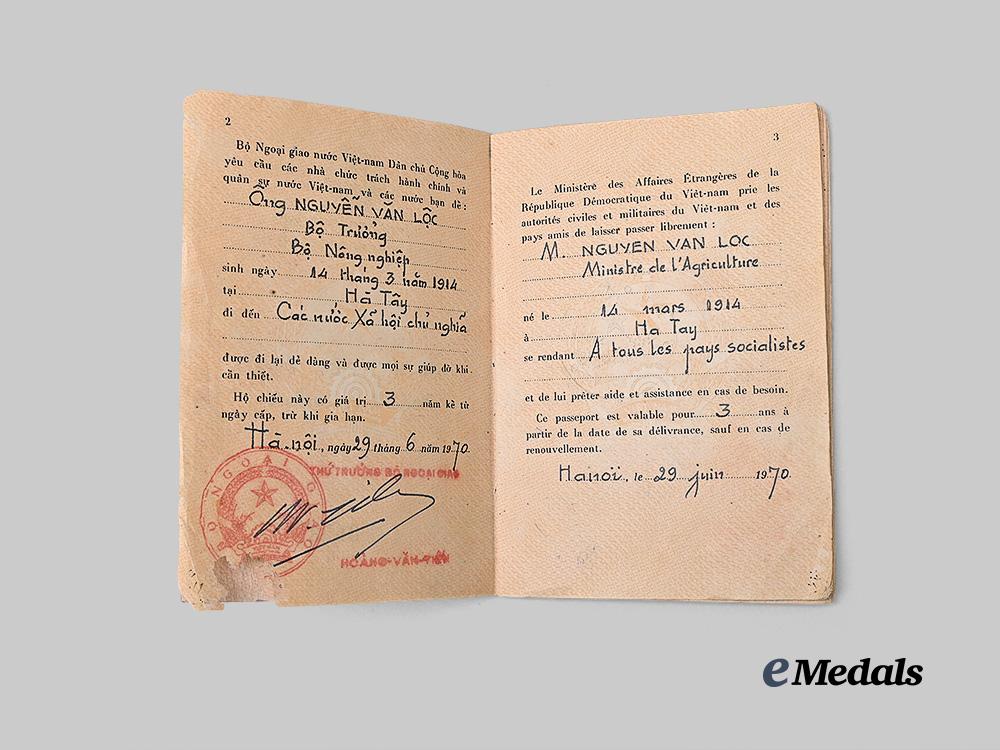 2
Bộ Ngoại giao nước Việt-nam Dân chủ Cộng hòa
yêu cầu các nhà chức trách hành chính và
quân sự nước Việt-nam và các nước bạn để:
Ông NGUYỄN VĂN LỘC
Bộ Trưởng
Bộ Nông nghiệp
sinh ngày 14 tháng 3 năm 1914
tại Hà Tây
đi đến Các nước Xã hội chủ nghĩa
được đi lại dễ dàng và được mọi sự giúp đỡ khi
cần thiết.
Hộ chiếu này có giá trị 3 năm kể từ
ngày cấp, trừ khi gia hạn.
Hà-nội, ngày 29 tháng 6 năm 1970
BỘ NGOẠI GIAO
THỨ TRƯỞNG BỘ NGOẠI GIAO
HOÀNG-VĂN-TIẾN
3
Le Ministère des Affaires Étrangères de la
République Démocratique du Viêt-nam prie les
autorités civiles et militaires du Viêt-nam et des
pays amis de laisser passer librement :
M. NGUYEN VAN LOC
Ministre de l'Agriculture
né le 14 mars 1914
à Ha Tay
se rendant A tous les pays socialistes
et de lui prêter aide et assistance en cas de besoin.
Ce passeport est valable pour 3 ans à
partir de la date de sa délivrance, sauf en cas de
renouvellement.
Hanoï, le 29 juin 1970
eMedals